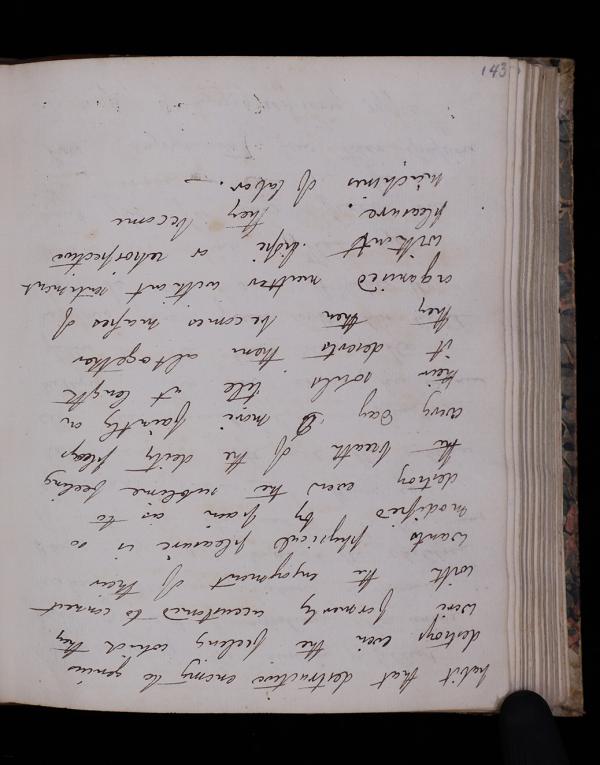 143
habit that destructive enemy to genius
destroys even the feeling which they
were formerly accustomed to connect
with the enjoyment of their
wants physical pleasure is so
modified by pain as to
destroy even the sublime feeling
the breath of the deity plays
every day more faintly on
their souls till at length
it deserts them altogether
they then becomes masses of
organised matter without sentiment
without hope or retrospective
pleasure. they become
machines of labor. —